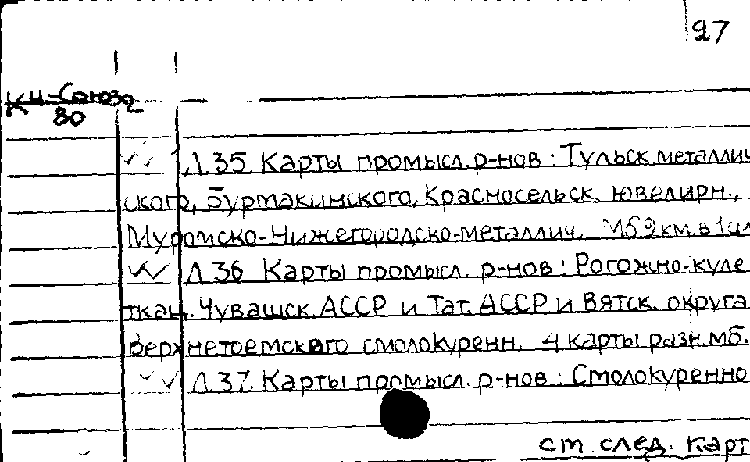 27
Кн-Союза
80
Л.35 Карты промысл. р-нов: Тульск. металлич
ского, Бурмакинского, Красносельск. ювелирн.,
Муромско-Нижегородско-металлич. М52км. в 1см
Л.36 Карты промысл. р-нов: Рогожно-куле
ткан. Чувашск. АССР и Тат. АССР и Вятск. округа
Верхнетоемского смолокуренн. 4 карты разн. мб.
Л.37. Карты промысл. р-нов: Смолокуренно
см. след. карт